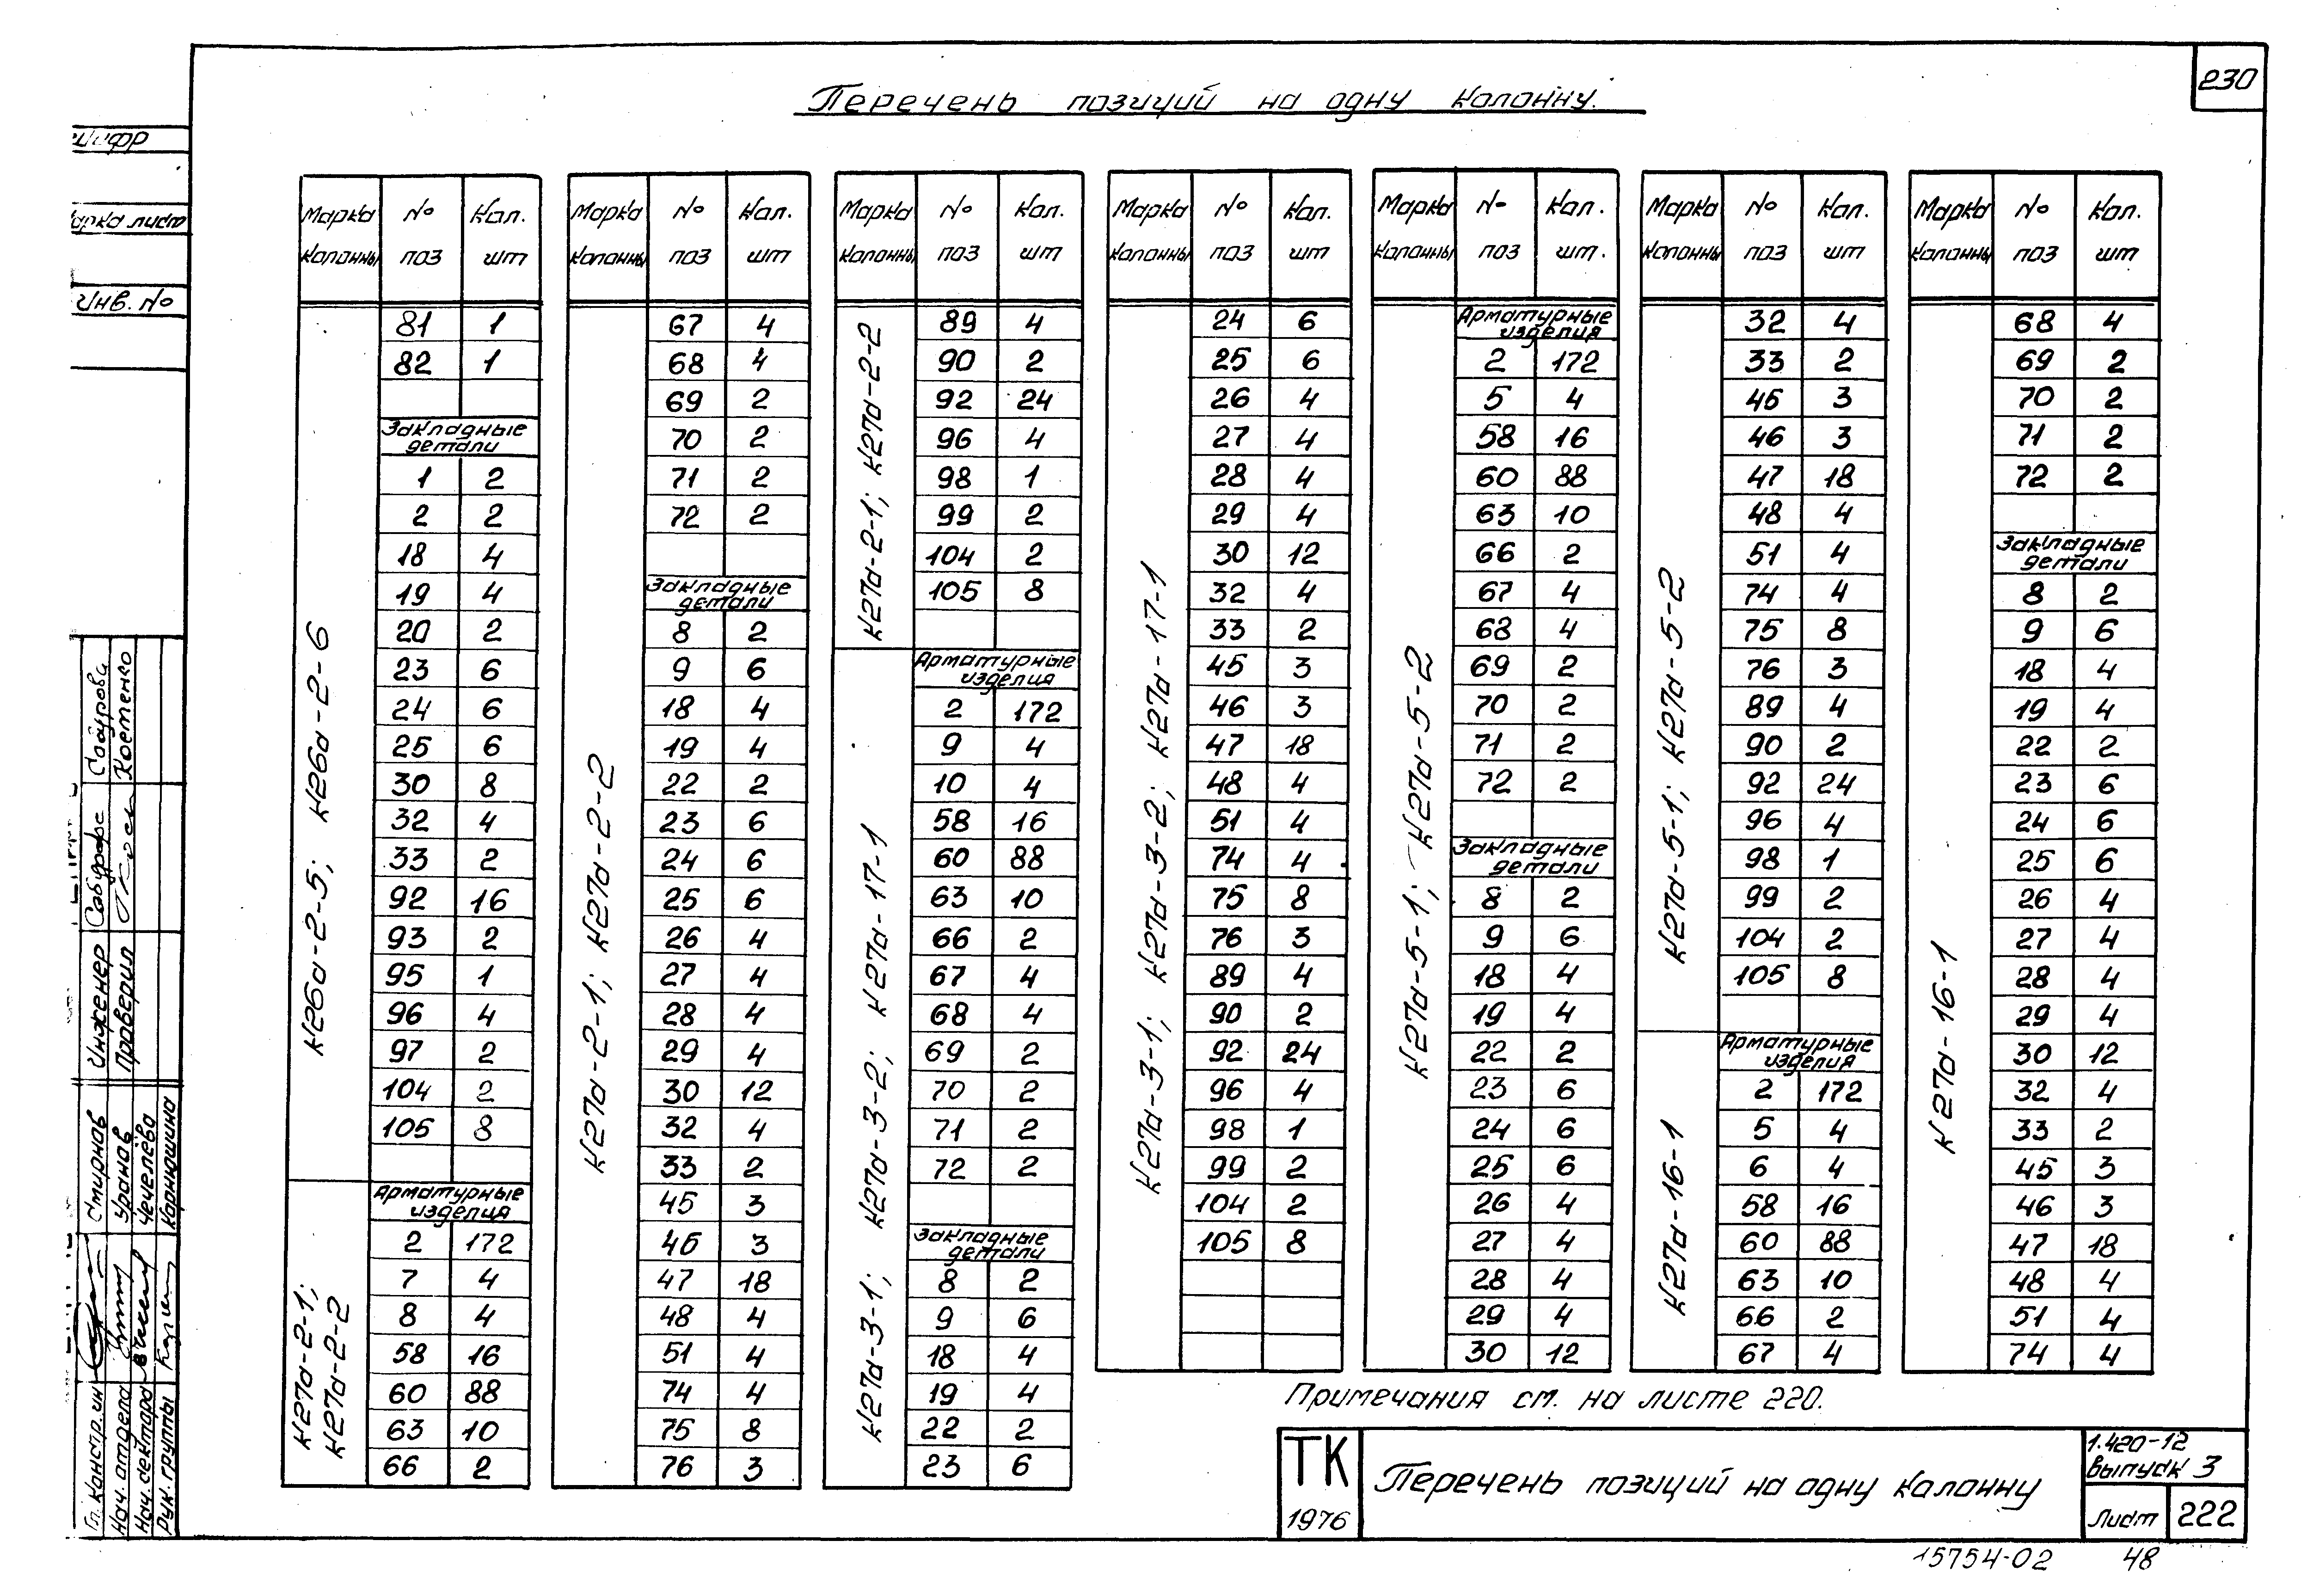 230
Перечень позиций на одну колонну.
ешифр
арка лист
Инв. №
Марка колонны | № поз | Кол. шт
К26д-2-5; К26д-2-6
81 1
82 1
Закладные детали
1 2
2 2
18 4
19 4
20 2
23 6
24 6
25 6
30 8
32 4
33 2
92 16
93 2
95 1
96 4
97 2
104 2
105 8
К27д-2-1; К27д-2-2
Арматурные изделия
2 172
7 4
8 4
58 16
60 88
63 10
66 2
Марка колонны | № поз | Кол. шт
К27д-2-1; К27д-2-2
67 4
68 4
69 2
70 2
71 2
72 2
Закладные детали
8 2
9 6
18 4
19 4
22 2
23 6
24 6
25 6
26 4
27 4
28 4
29 4
30 12
32 4
33 2
45 3
46 3
47 18
48 4
51 4
74 4
75 8
76 3
Марка колонны | № поз | Кол. шт
К27д-2-1; К27д-2-2
89 4
90 2
92 24
96 4
98 1
99 2
104 2
105 8
К27д-3-1; К27д-3-2; К27д-17-1
Арматурные изделия
2 172
9 4
10 4
58 16
60 88
63 10
66 2
67 4
68 4
69 2
70 2
71 2
72 2
Закладные детали
8 2
9 6
18 4
19 4
22 2
23 6
Марка колонны | № поз | Кол. шт
К27д-3-1; К27д-3-2; К27д-17-1
24 6
25 6
26 4
27 4
28 4
29 4
30 12
32 4
33 2
45 3
46 3
47 18
48 4
51 4
74 4
75 8
76 3
89 4
90 2
92 24
96 4
98 1
99 2
104 2
105 8
Марка колонны | № поз | Кол. шт.
К27д-5-1; К27д-5-2
Арматурные изделия
2 172
5 4
58 16
60 88
63 10
66 2
67 4
68 4
69 2
70 2
71 2
72 2
Закладные детали
8 2
9 6
18 4
19 4
22 2
23 6
24 6
25 6
26 4
27 4
28 4
29 4
30 12
Марка колонны | № поз | Кол. шт
К27д-5-1; К27д-5-2
32 4
33 2
45 3
46 3
47 18
48 4
51 4
74 4
75 8
76 3
89 4
90 2
92 24
96 4
98 1
99 2
104 2
105 8
К27д-16-1
Арматурные изделия
2 172
5 4
6 4
58 16
60 88
63 10
66 2
67 4
Марка колонны | № поз | Кол. шт
К27д-16-1
68 4
69 2
70 2
71 2
72 2
Закладные детали
8 2
9 6
18 4
19 4
22 2
23 6
24 6
25 6
26 4
27 4
28 4
29 4
30 12
32 4
33 2
45 3
46 3
47 18
48 4
51 4
74 4
Примечания см. на листе 220.
ТК
1976
Перечень позиций на одну колонну
1.420-12
выпуск 3
Лист 222
15754-02 48
Гл. констр. ин Смирнов
Нач. отдела Уранов
Нач. сектора Чечелёва
Рук. группы Карношина
Инженер
Проверил Костенко